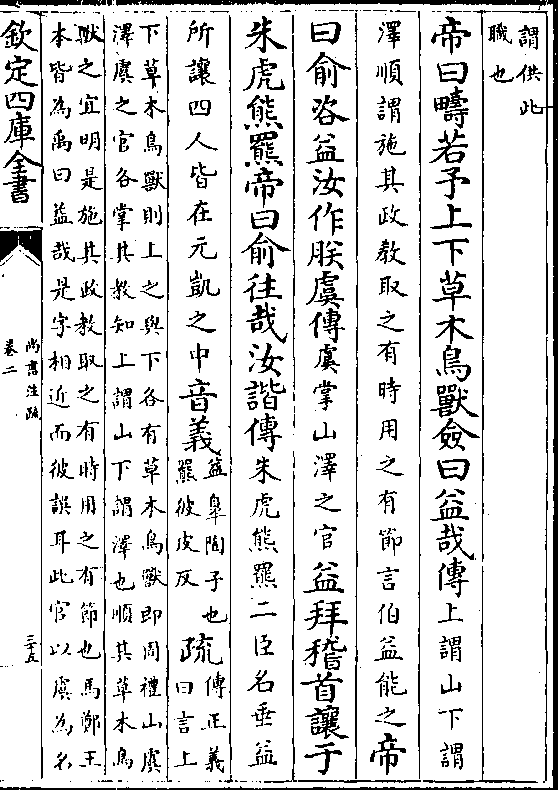 謂供此
職也
帝曰疇若予上下草木鳥獸僉曰益哉傳上謂山下謂
澤順謂施其政教取之有時用之有節言伯益能之帝
曰俞咨益汝作朕虞傳虞掌山澤之官益拜稽首讓于
朱虎熊羆帝曰俞往哉汝諧傳朱虎熊羆二臣名垂益
所讓四人皆在元凱之中音義益皐陶子也
羆彼皮反疏傳正義
曰言上
下草木鳥獸則上之與下各有草木鳥獸即周禮山虞
澤虞之官各掌其教知上謂山下謂澤也順其草木鳥
獸之宜明是施其政教取之有時用之有節也馬鄭王
本皆為禹曰益哉是字相近而彼誤耳此官以虞為名
欽定四庫全書
尚書注疏
卷二
三十五